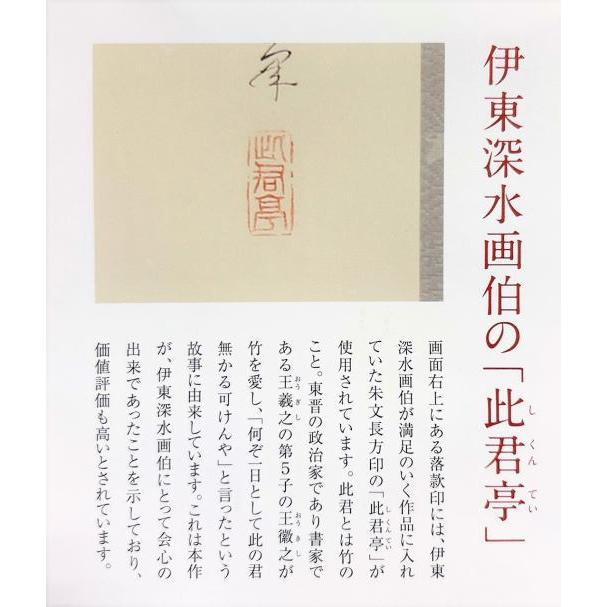 伊東深水画伯の「此君亭」
しくんてい
此君亭
画面右上にある落款印には、伊東
深水画伯が満足のいく作品に入れ
ていた朱文長方印の「此君亭」が
しくんてい
使用されています。此君とは竹の
こと。東晋の政治家であり書家で
ある王羲之の第5子の王徽之が
おうぎし
おうきし
竹を愛し、「何ぞ一日として此の君
無かる可けんや」と言ったという
故事に由来しています。これは本作
が、伊東深水画伯にとって会心の
出来であったことを示しており、
価値評価も高いとされています。